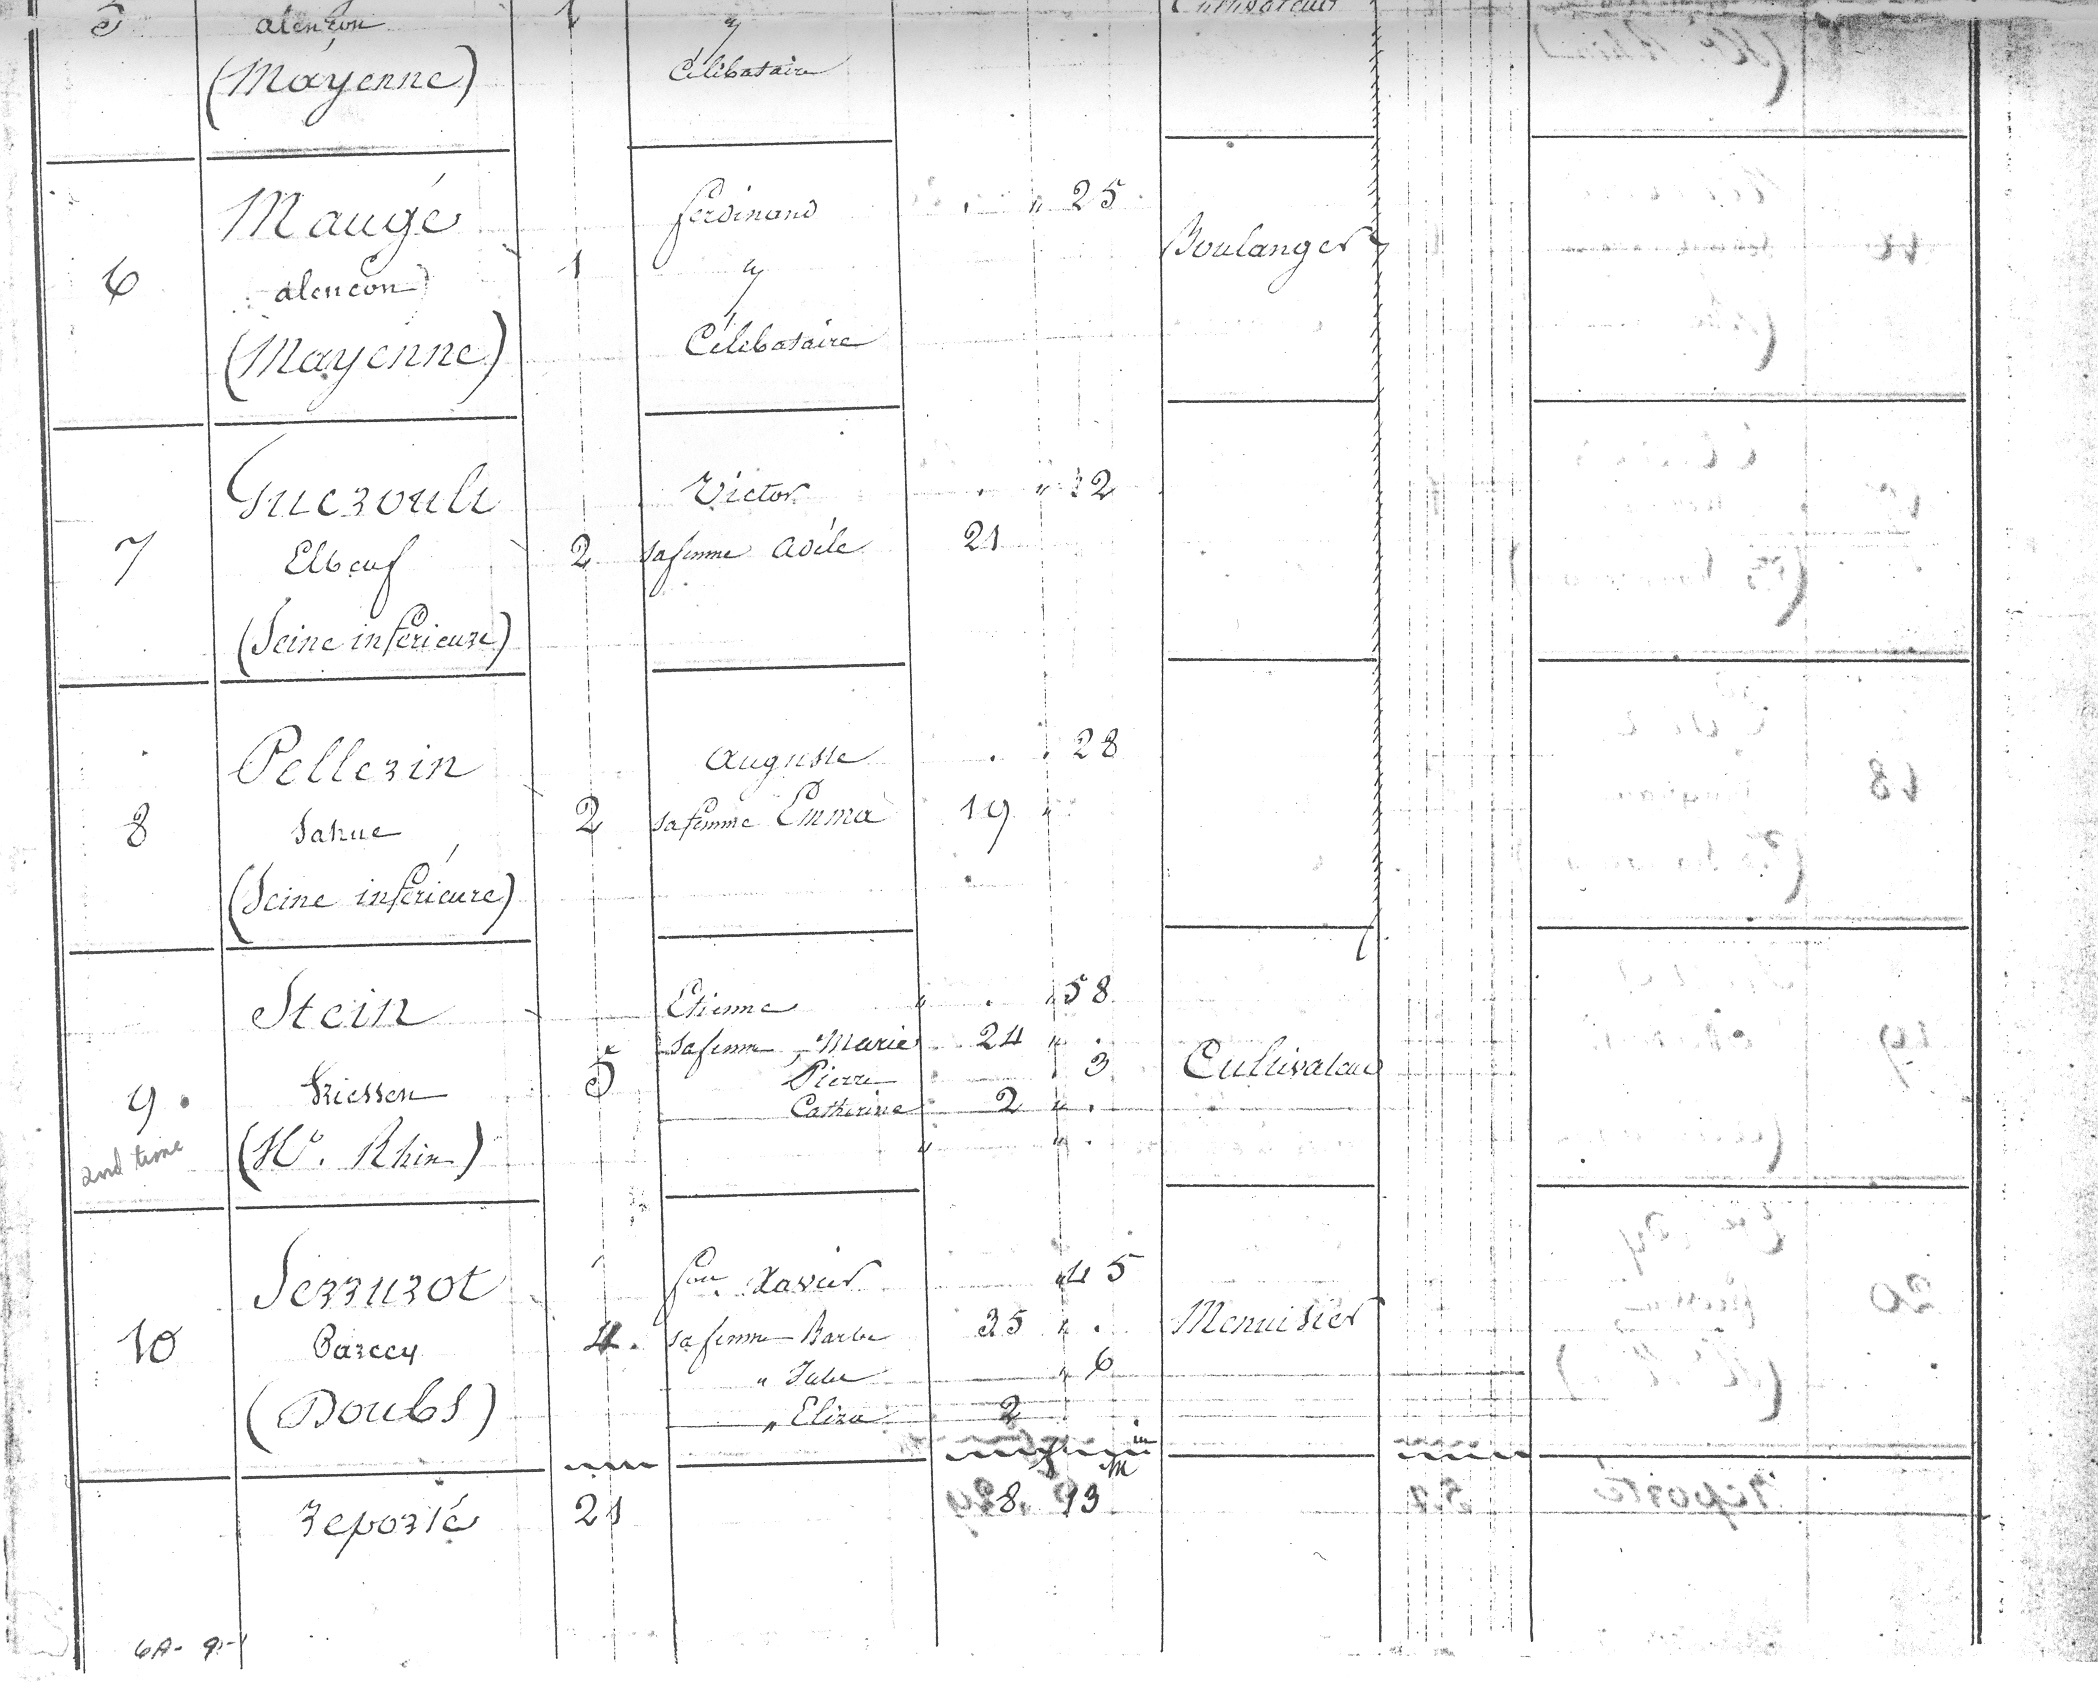 5 alençon 1 " Cultivateur
(Mayenne) Célébataire
Maugé ferdinand " 25
6 alencon 1 " Boulanger
(Mayenne) Célébataire
Guerouli Victor " 32
7 Elbeuf 2 sa femme Adèle 21
(Seine inférieure)
Pellerin Auguste 28
8 Sahue 2 sa femme Emma 19 "
(Seine inférieure)
Stein Etienne " " 58
sa femme Marie 24 "
9 5 Pierre 3 Cultivateur
Friessen Catherine 2 "
2nd time (Ht. Rhin) " "
Serrurot fois. Xavier " 45
10 Parcey 4 sa femme Barbe 35 " Menuisier
" Jules " 6
(Doubs) " Eliza 2
reporté 21 8 13
6A- 9-1